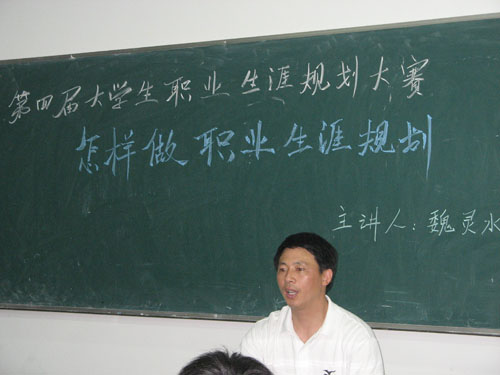 第四届大学生职业生涯规划大赛
怎样做职业生涯规划
主讲人：魏灵水